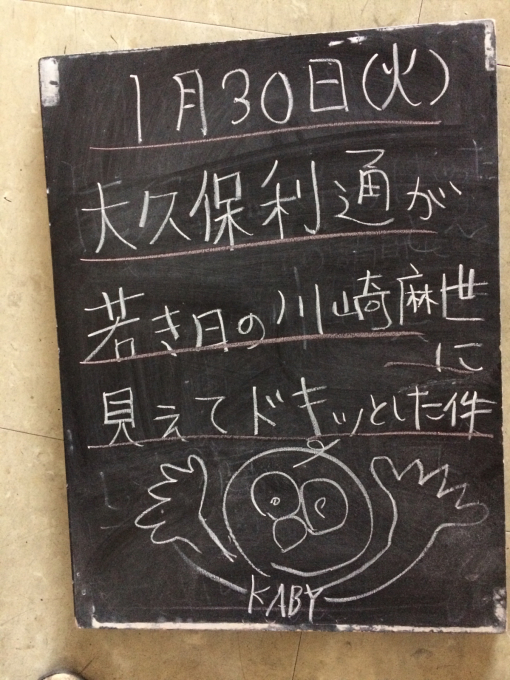 1月30日(火)
大久保利通が
若き日の川崎麻世
に
見えてドキッとした件
KABY